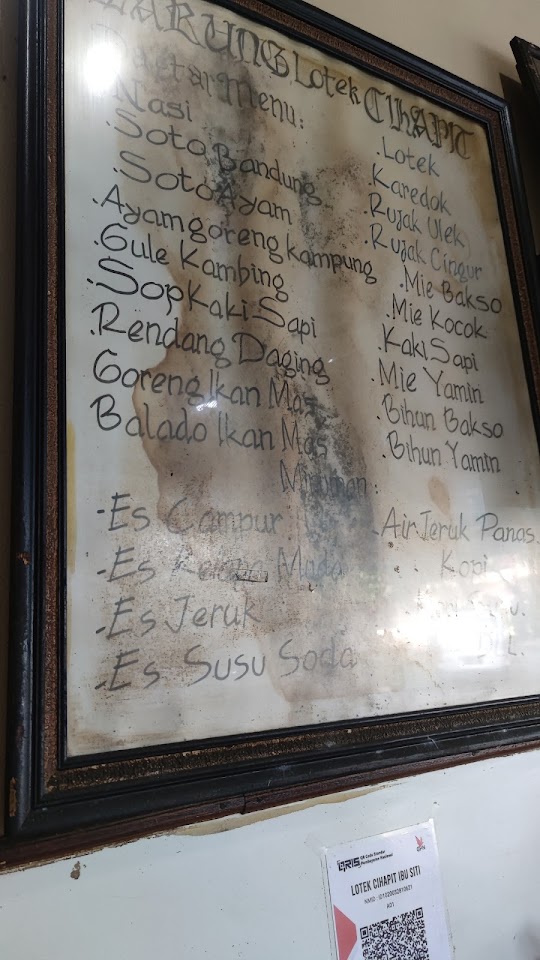 WARUNG Lotek CIhAPIT
Daftar Menu:
.Nasi
.Soto Bandung
.Soto Ayam
.Ayam goreng kampung
.Gule Kambing
.Sop Kaki Sapi
.Rendang Daging
Goreng Ikan Mas
Balado Ikan Mas
.Lotek
.Karedok
.Rujak Ulek
.Rujak Cingur
.Mie Bakso
.Mie Kocok
.Kaki Sapi
.Mie Yamin
.Bihun Bakso
.Bihun Yamin
Minuman:
-Es Campur
-Es Kelapa Muda
-Es Jeruk
-Es Susu Soda
-Air Jeruk Panas.
Kopi
DLL.
QRIS
QR Code Standar
Pembayaran Nasional
GPN
LOTEK CIHAPIT IBU SITI
A01